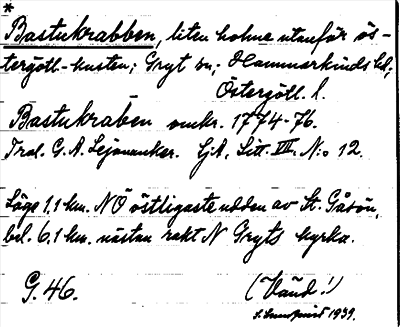 *
Bastukrabben, liten holme utanför ös-
tergötl.-kusten; Gryt sn; Hammarkinds hd;
Östergötl. l.
Bastukraben omkr. 1774-76.
Trol. G. A. Lejonanker. GjA, Litt. VII. N:o 12.
Läge 1.1 km. NÖ östligaste udden av St. Gåsön,
bel. 6.1 km. nästan rakt N Gryts kyrka.
G. 46. (Vänd!)
1939.